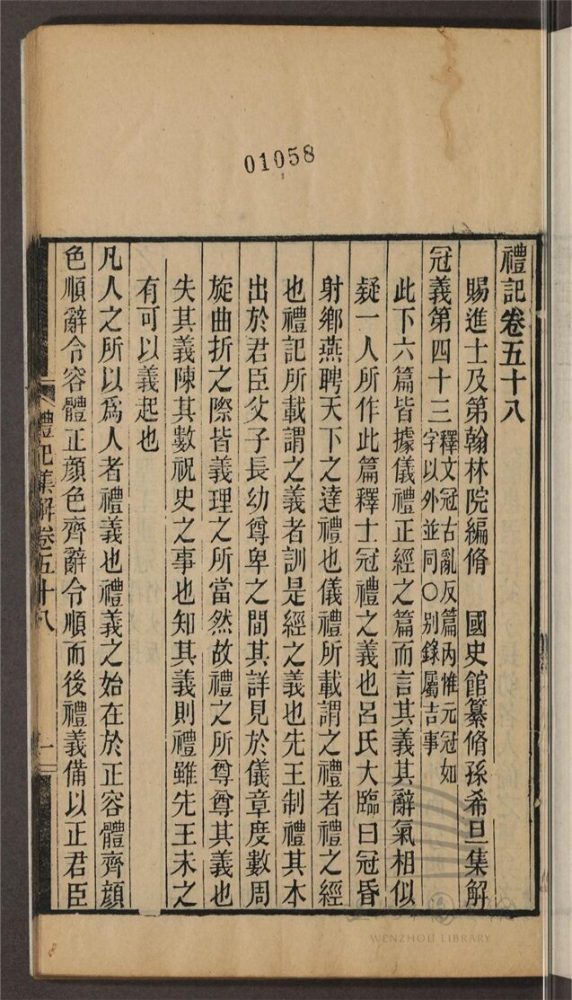 01058
禮記卷五十八
賜進士及第翰林院編脩 國史館纂脩孫希旦集解
冠義第四十三釋文冠古亂反篇內惟元冠如
字以外並同○别錄屬吉事
此下六篇皆據儀禮正經之篇而言其義其辭氣相似
疑一人所作此篇釋士冠禮之義也呂氏大臨曰冠昏
射鄉燕聘天下之達禮也儀禮所載謂之禮者禮之經
也禮記所載謂之義者訓是經之義也先王制禮其本
出於君臣父子長幼尊卑之間其詳見於儀章度數周
旋曲折之際皆義理之所當然故禮之所尊尊其義也
失其義陳其數祝史之事也知其義則禮雖先王未之
有可以義起也
凡人之所以爲人者禮義也禮義之始在於正容體齊顔
色順辭令容體正顔色齊辭令順而後禮義備以正君臣
禮記集解卷五十八 一
WENZHOU LIBRARY